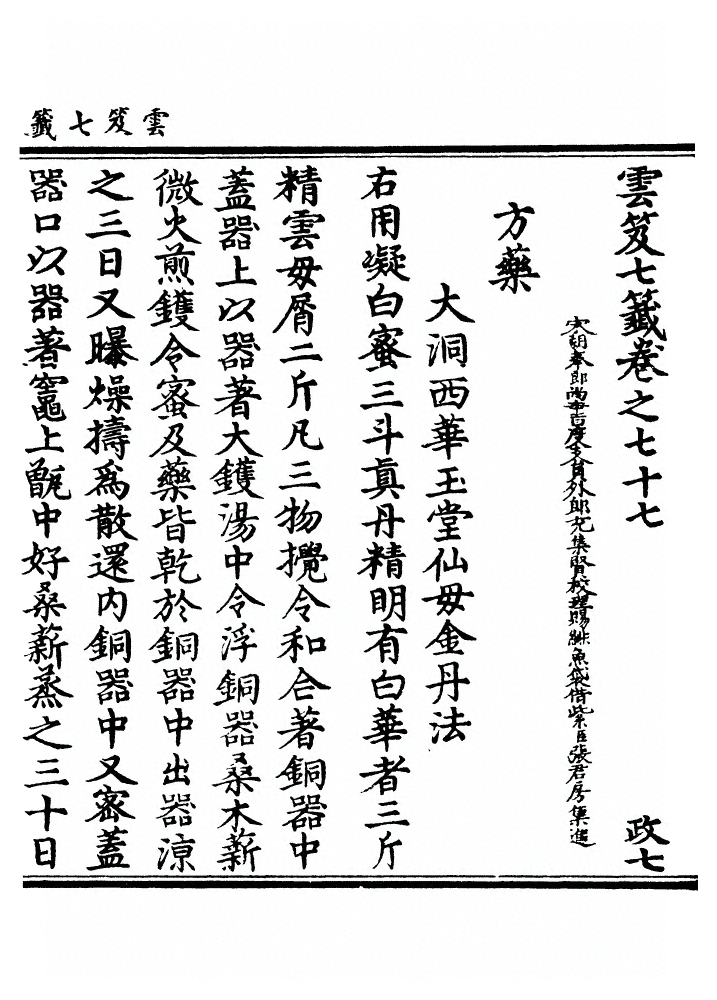 雲笈七籤
雲笈七籤卷之七十七 政七
宋朝奉郎尚書度支員外郎充集賢校理賜緋魚袋借紫臣張君房集進
方藥
大洞西華玉堂仙毋金丹法
右用凝白蜜三斗眞丹精明有白華者三斤
精雲毋屑二斤凡三物攪令和合著銅器中
蓋器上以器著大鑊湯中令浮銅器桑木薪
微火煎鑊令蜜及藥皆乾於銅器中出器涼
之三日又曝燥擣爲散還内銅器中又密蓋
器口以器著竈上甑中好桑薪蒸之三十日